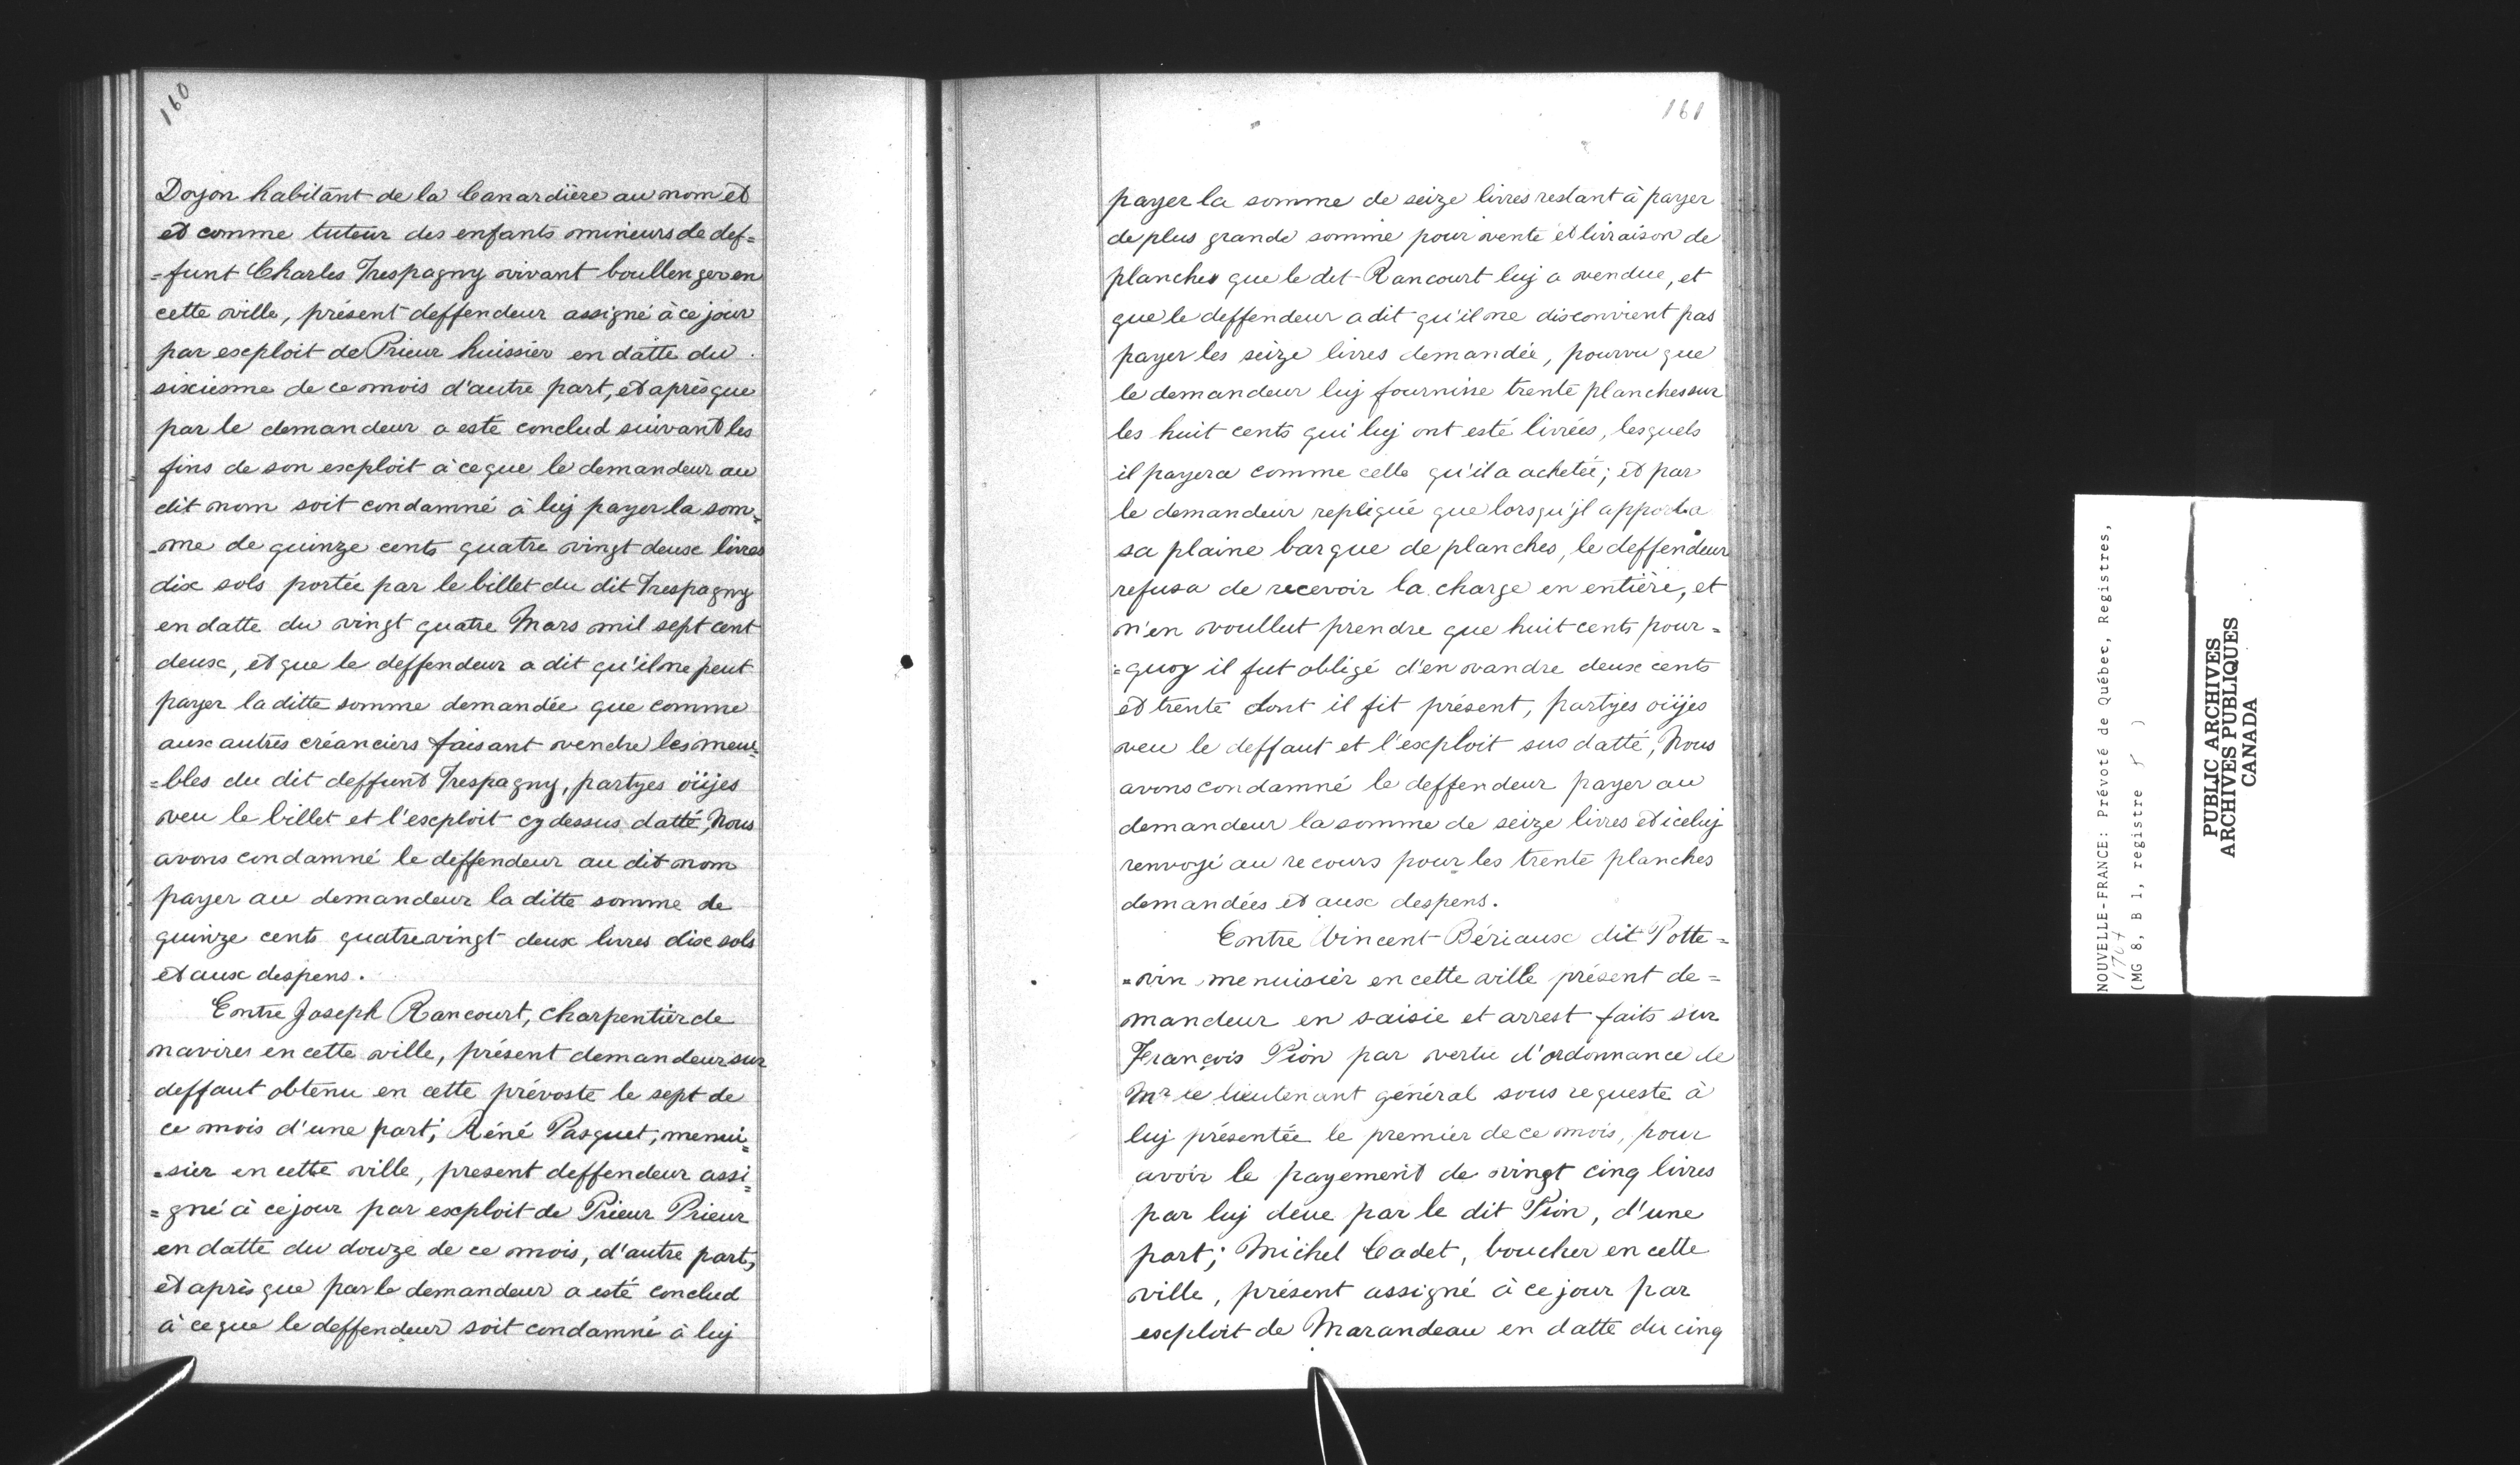 160
Doyon habitant de la Canardière au nom et
et comme tuteur des enfants mineurs de def=
=funt Charles Trespagny vivant boullenger en
cette ville, présent deffendeur assigné à ce jour
par exploit de Prieur huissier en datte du
sixiesme de ce mois d'autre part, et après que
par le demandeur a esté conclud suivant les
fins de son exploit à ce que le demandeur au
dit nom soit condamné à luy payer la som=
=me de quinze cents quatre vingt deux livres
dix sols portée par le billet du dit Trespagny
en datte du vingt quatre Mars mil sept cent
deux, et que le deffendeur a dit qu'il ne peut
payer la ditte somme demandée que comme
aux autres créanciers faisant vendre les meu=
=bles du dit deffunt Trespagny, partyes oüyes
veu le billet et l'exploit cy dessus datté, Nous
avons condamné le deffendeur au dit nom
payer au demandeur la ditte somme de
quinze cents quatre vingt deux livres dix sols
et aux despens.
Entre Joseph Rancourt, charpentier de
navires en cette ville, présent demandeur sur
deffaut obtenu en cette prévosté le sept de
ce mois d'une part; Réné Pasquet, menui=
=sier en cette ville, present deffendeur assi=
=gné à ce jour par exploit de Prieur Prieur
en datte du douze de ce mois, d'autre part,
et après que par le demandeur a esté conclud
à ce que le deffendeur soit condamné à luy
161
payer la somme de seize livres restant à payer
de plus grande somme pour vente et livraison de
planches que le dit Rancourt luy a vendue, et
que le deffendeur a dit qu'il ne disconvient pas
payer les seize livres demandée, pourvu que
le demandeur luy fournisse trente planches sur
les huit cents qui luy ont esté livrées, lesquels
il payera comme celle qu'il a achetée; et par
le demandeur repliqué que lorsqu'jl apporta
sa plaine barque de planches, le deffendeur
refusa de recevoir la charge en entière, et
n'en voullut prendre que huit cents pour=
=quoy il fut obligé d'en vandre deux cents
et trente dont il fit présent, partyes oüyes
veu le deffaut et l'exploit sus datté, Nous
avons condamné le deffendeur payer au
demandeur la somme de seize livres et iceluy
renvoyé au recours pour les trente planches
demandées et aux despens.
Entre Vincent Bériaux dit Potte=
=vin menuisier en cette ville présent de=
mandeur en saisie et arrest faits sur
François Pion par vertu d'ordonnance de
Mr le lieutenant général sous requeste à
luy présentée le premier de ce mois, pour
avoir le payement de vingt cinq livres
par luy deue par le dit Pion, d'une
part; Michel Cadet, boucher en cette
ville, présent assigné à ce jour par
exploit de Marandeau en datte du cinq
NOUVELLE-FRANCE: Prévoté de Québec, Registres,
1707
(MG 8, B 1, registre 5 )
PUBLIC ARCHIVES
ARCHIVES PUBLIQUES
CANADA